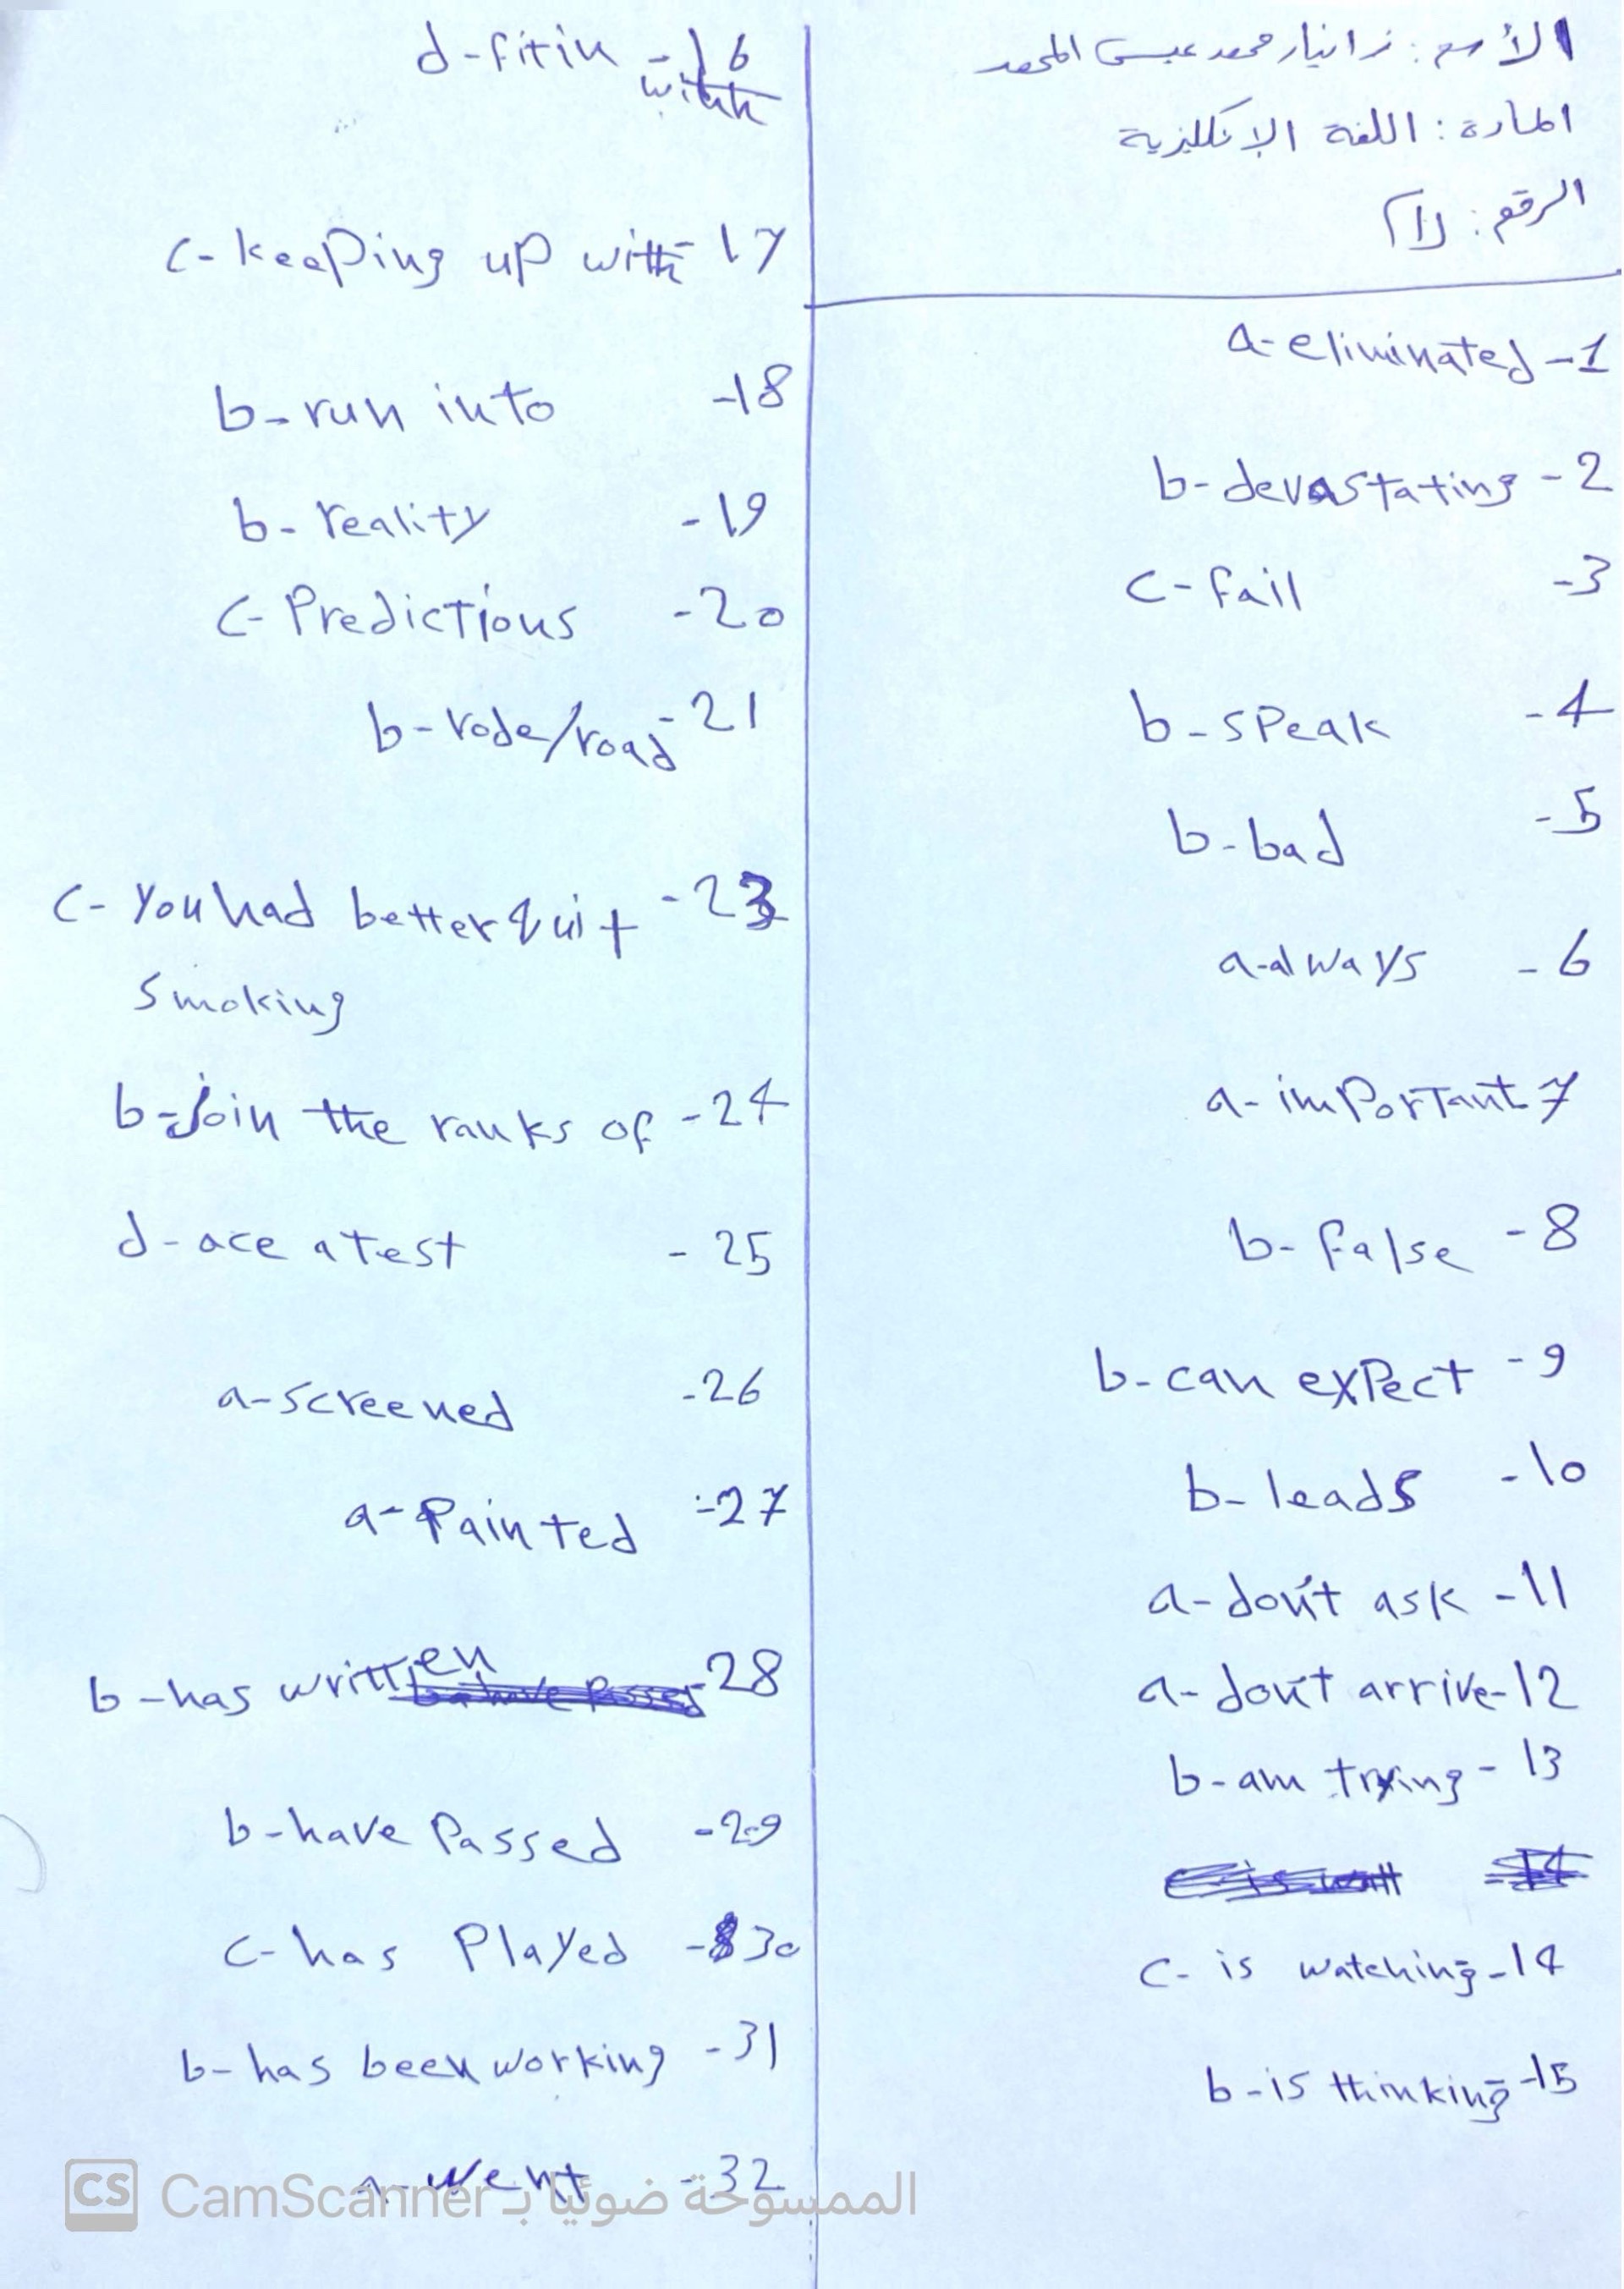 الأسم : زانيار محمد عيسى المحمد
المادة : اللغة الإنكليزية
الرقم :
a- eliminated -1
b- devastating -2
c- fail -3
b- speak -4
b- bad -5
a- always -6
a- important 7
b- false -8
b- can expect -9
b- leads -10
a- don't ask -11
a- don't arrive -12
b- am trying - 13
c- is watching -14
b- is thinking -15
d- fitin -16
with
c- keeping up with - 17
b- run into -18
b- reality -19
c- Predictions -20
b- rode/road -21
c- You had better quit -23
smoking
b- Join the ranks of -24
d- ace a test - 25
a- screened -26
a- Painted -27
b- has written -28
b- have Passed -29
c- has Played -30
b- has been working -31
a- went -32
CS CamScanner الممسوحة ضوئيا بـ